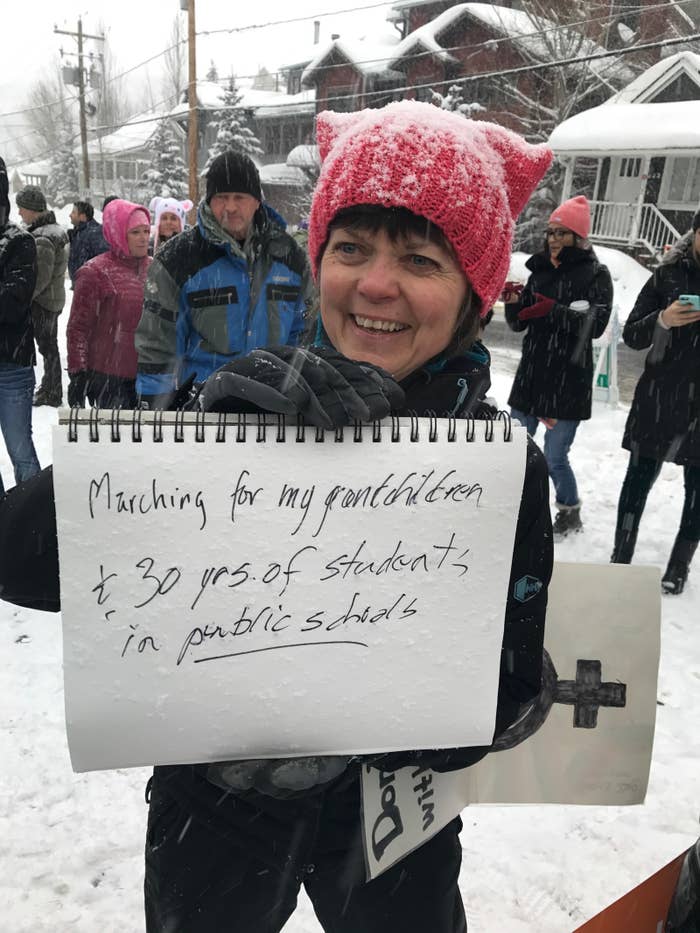 Marching for my grandchildren
& 30 yrs. of students
in public schools